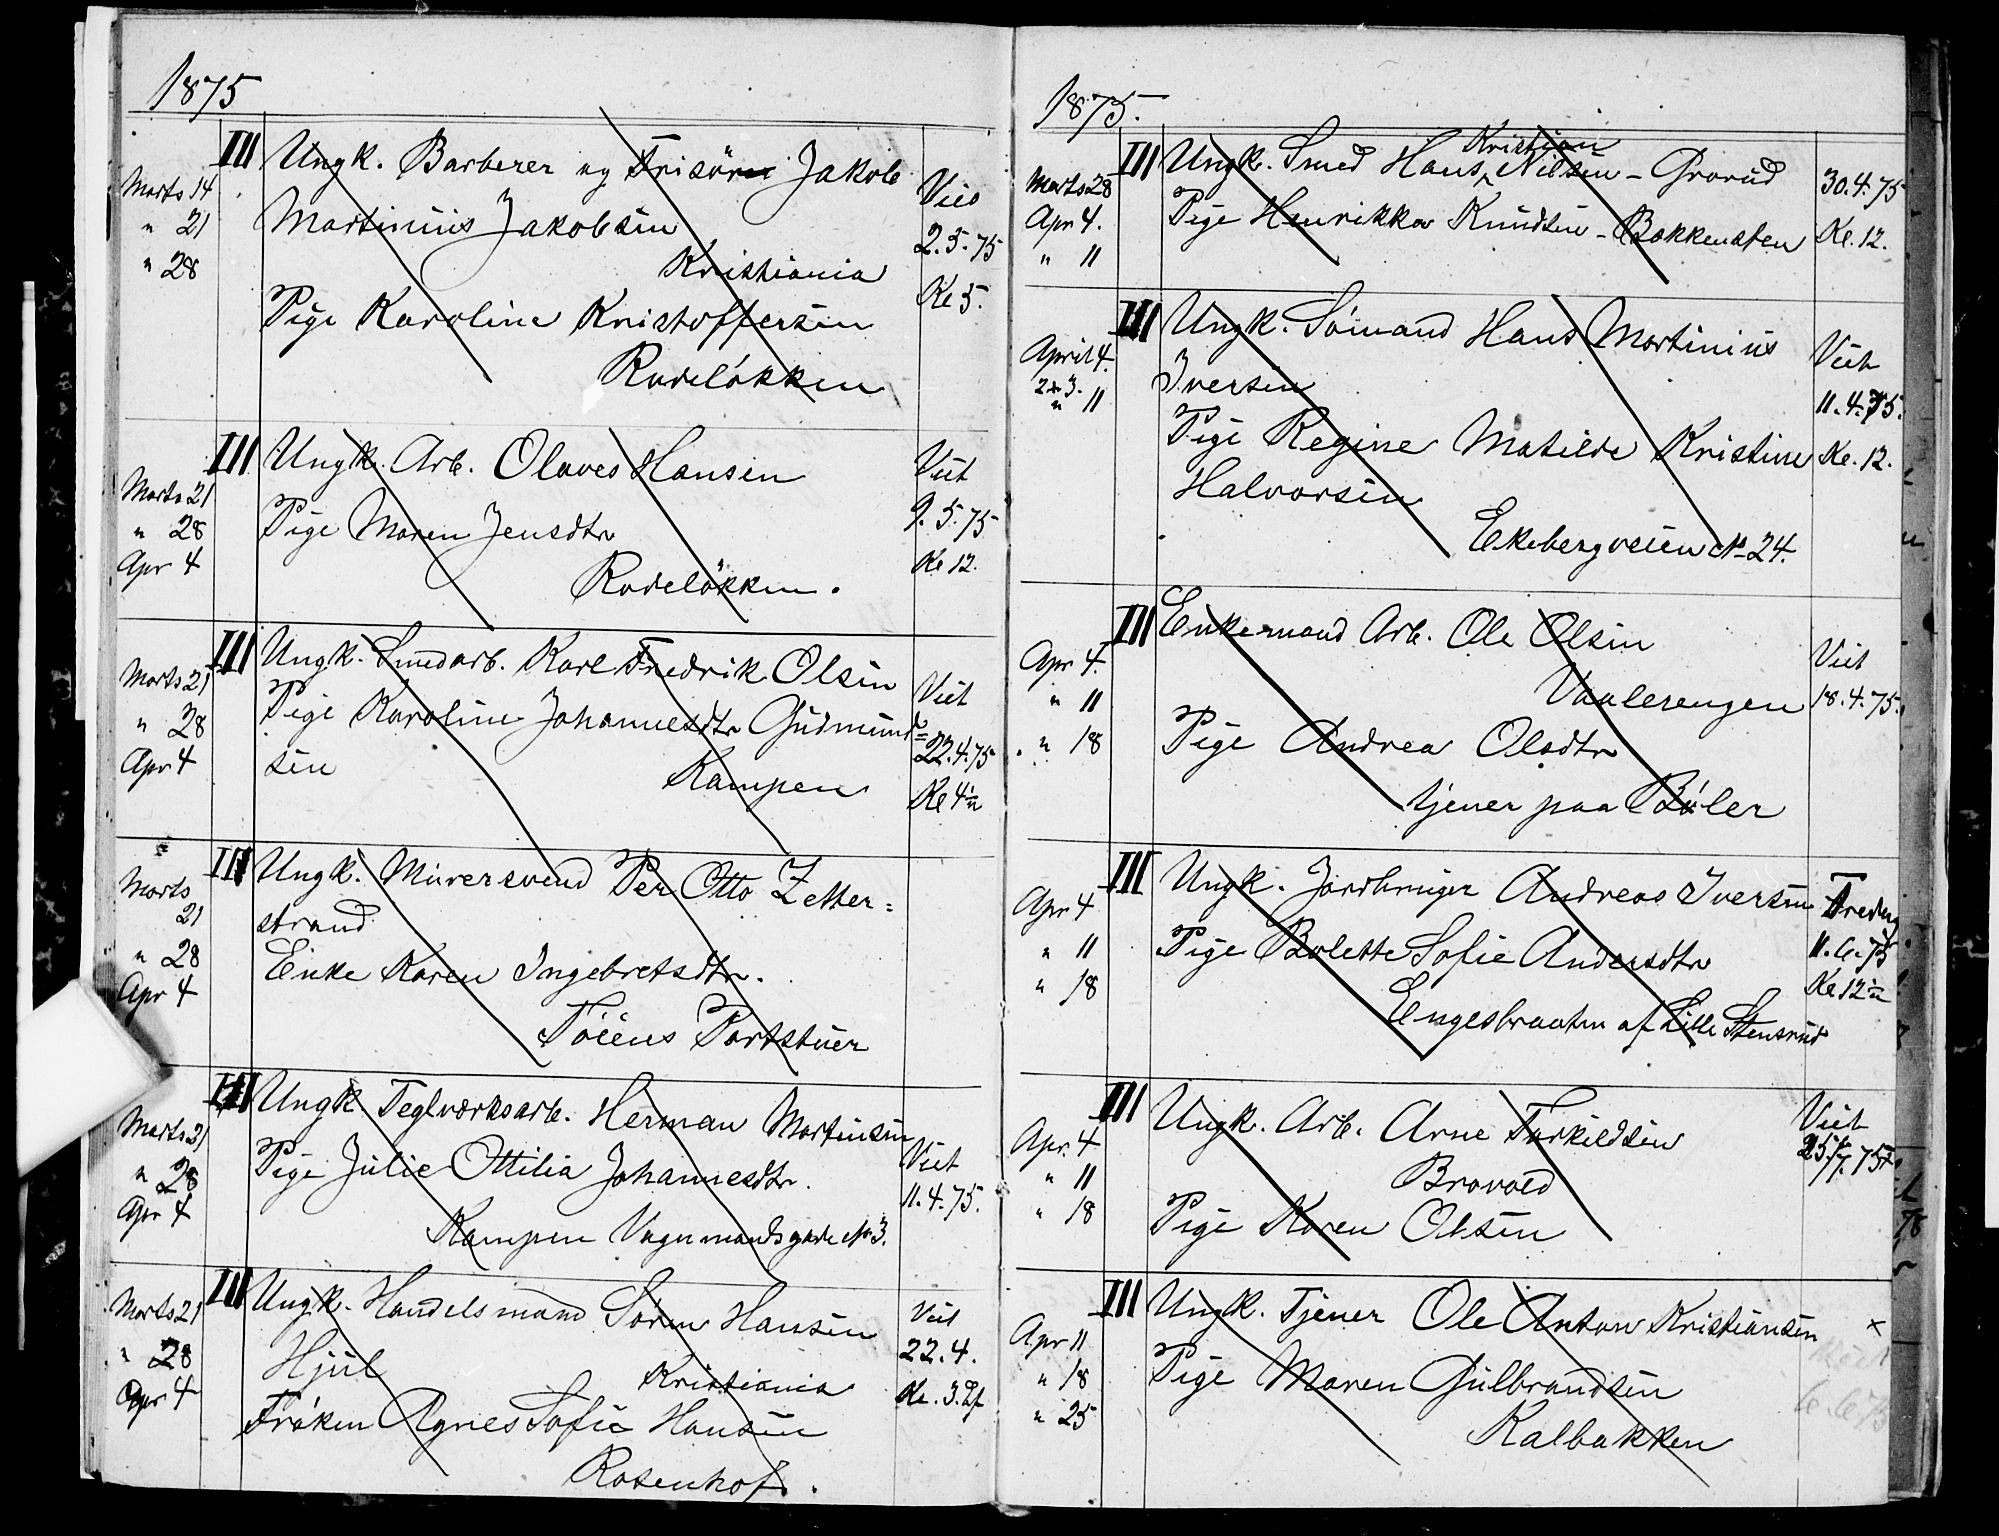 1875
III Ungk. Barberer og Frisör Jakob
Marts 14
" 21
" 28
Martinius Jakobsen
Kristiania
Pige Karoline Kristoffersen
Rodeløkken
Viet
2.5.75
Kl 5.
III Ungk. Arb. Olaves Hansen
Marts 21
" 28
Apr 4
Pige Maren Jensdtr
Rodeløkken.
Viet
9.5.75
Kl 12.
III Ungk. Smedarb. Karl Fredrik Olsen
Marts 21
" 28
Apr 4
Pige Karoline Johannesdtr Gudmund=
sen Kampen
Viet
22.4.75
Kl 4½
III Ungk. Murersvend Per Otto Zetter=
Marts
21
" 28
Apr 4
strand
Enke Karen Ingebretsdtr.
Töiens Portstuer
III Ungk. Teglværksarb. Herman Martinsen
Marts 21
" 28
Apr 4
Pige Julie Ottilia Johannesdtr.
Kampen Vognmandsgade No 3.
Viet
11.4.75.
III Ungk. Handelsmand Søren Hansen
Marts 21
" 28
Apr 4
Hjul Kristiania
Frøken Agnes Sofie Hansen
Rosenhof.
Viet
22.4.
Kl. 3.
1875.
III Ungk. Smed Hans Kristian Nilsen - Grorud
Marts 28
Apr 4.
" 11
Pige Henrikka Knudsen - Bakkenaten
30.4.75
Kl. 12.
III Ungk. Sömand Hans Martinius
April 4.
2 & 3.
" 11
Iversen
Pige Regine Matilde Kristine
Halvorsen
Ekebergveien No 24.
Viet
11.4.75.
Kl. 12.
III Enkemand Arb. Ole Olsen
Apr 4.
" 11
" 18
Vaalerengen
Pige Andrea Olsdtr
tjener paa Bøler
Viet
18.4.75.
III Ungk. Jordbruger Andreas Iversen
Apr 4
" 11
" 18
Pige Bolette Sofie Andersdtr
Engesbraaten af Lille Stensrud
Fredag
11.6.75
Kl 12½
III Ungk. Arb. Arne Torkildsen
Apr. 4
" 11
" 18
Brovold
Pige Karen Olsen
Viet
25/7.75
III Ungk. Tjener Ole Anton Kristiansen
Apr 11
" 18
" 25
Pige Maren Gulbrandsen
Kalbakken
x
Viet
6.6.75